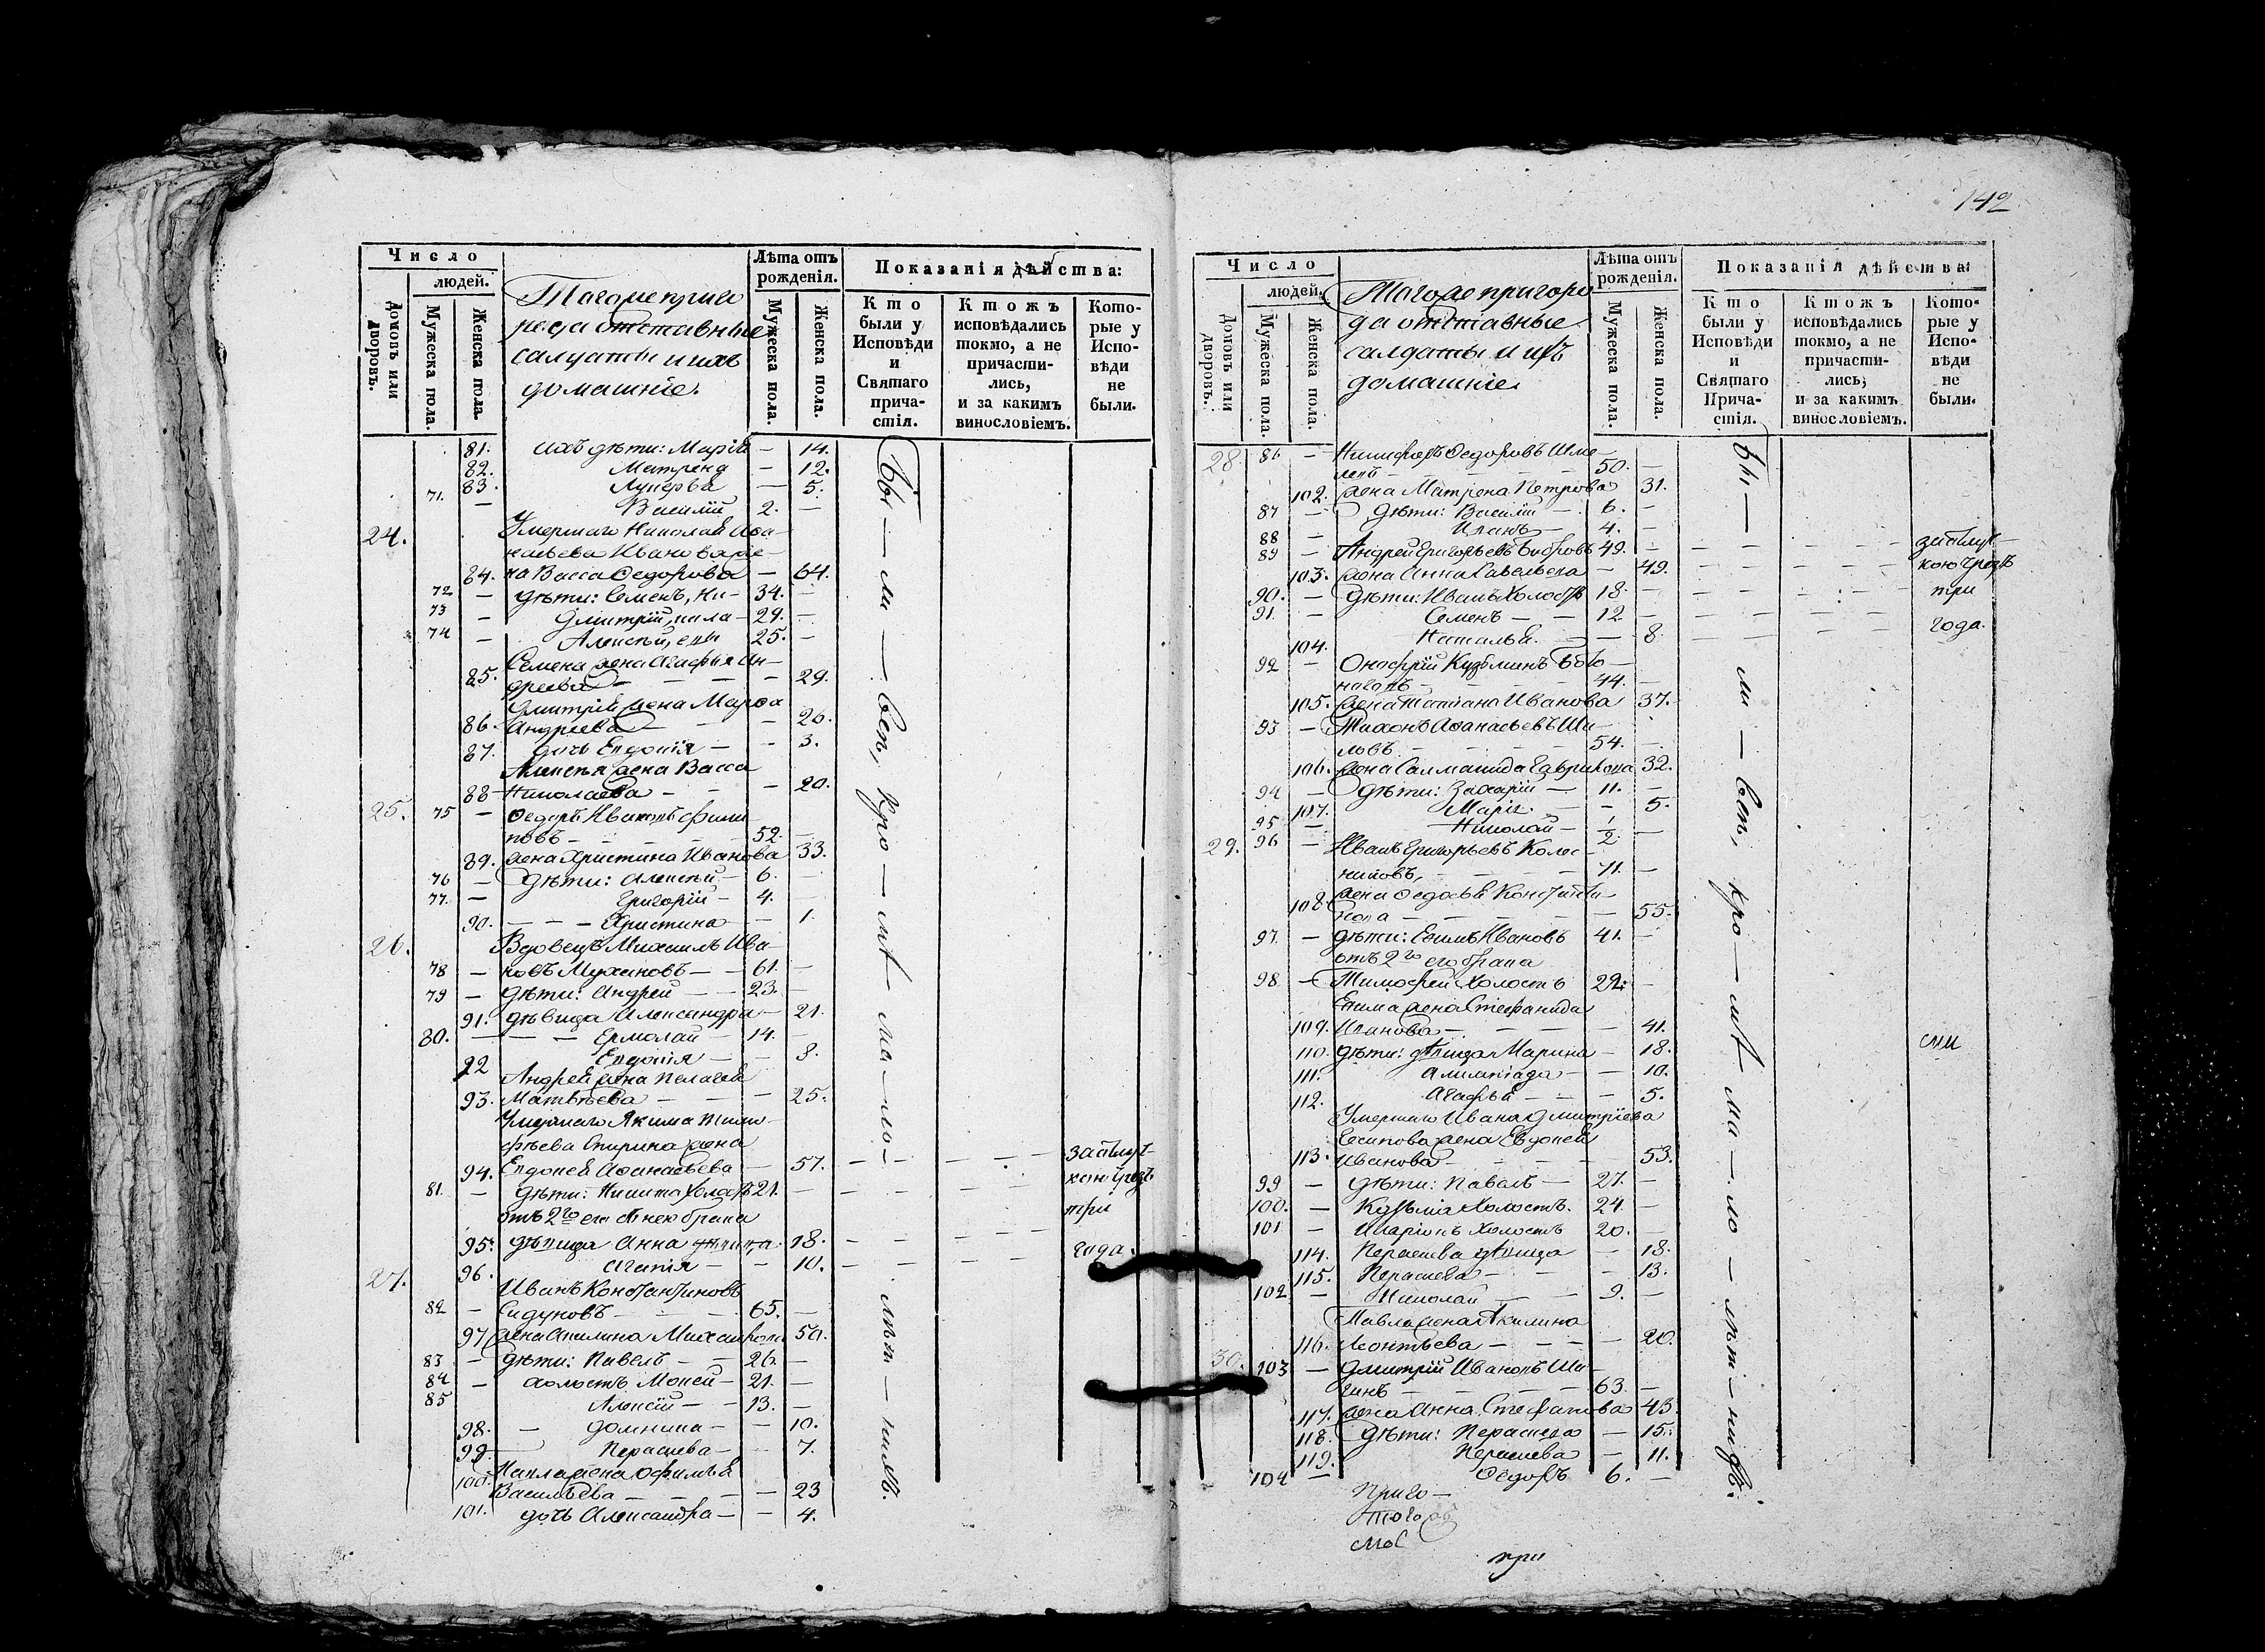 Число
людей.
Домовъ или дворовъ.
Мужеска пола.
Женска пола.
Тогоже приго
рода отставные
салдаты и ихъ
домашніе.
Лѣта отъ рожденія.
Мужеска пола.
Женска пола.
Показанія дѣйства:
Кто были у Исповѣди и Святаго причастія.
Ктожъ исповѣдались токмо, а не причастились, и за какимъ винословіемъ.
Которые у Исповѣди не были.
81. ихъ дѣти: Марія — 14.
82. Матрена — 12.
83. Лукерья — 5.
71. — Василій 2. —
24. Умершаго Николая Аѳа-
насьева Иванова же-
84. на Васса Ѳедорова — 64.
72 — дѣти: Семенъ, 34. —
73 — Дмитрій, 29. —
74 — Алексѣй, 25. —
Семена жена Агафья Ан-
85. дреева — — — — 29.
Дмитрія жена Марѳа
86. Андреева — — — 26.
87. дочь Евдокія — — 3.
Алексѣя жена Васса
88 Николаева — — — 20.
25. 75 — Ѳедоръ Ивановъ Фили
повъ — — — — 52. —
89. жена Христина Иванова 33.
76 — дѣти: Алексѣй — 6. —
77. — Григорій — 4. —
90. — — — Христина — 1.
26. Вдовецъ Михаилъ Ива-
78 — новъ Мухановъ — — 61. —
79 — дѣти: Андрей — — 23. —
91. дѣвица Александра — 21.
80. — — — Ермолай — 14. —
92 Евдокія — — 8.
Андрея жена Пелагея
93. Матвѣева — — — 25.
Умершаго Якима Тимо-
фѣева Спирина жена
94. Евдокея Аѳанасьева — 57. — — — — — за отлуч-
81. — дѣти: Никита Холостъ 21. — — — — — кою чрезъ
отъ 2го его брака три
95. дѣвица Анна 18. — — — — года.
96. Агапія — — 10. — — —
27. Иванъ Константиновъ
82 — Сидуновъ — — — 65. —
97 жена Акилина Михайлова 50.
83 — дѣти: Павелъ — — 26. —
84 — холостъ Мокей — 21. —
85 Алексій — — 13. —
98. — Домника — — 10.
99. — Параскева — — 7.
Павла жена Офимья
100. Васильева — — — 23
101. дочь Александра — — 4.
Бы — ли — вси, кро — мѣ ма — ло — лѣт — нихъ.
142
Число
людей.
Домовъ или дворовъ.
Мужеска пола.
Женска пола.
Тогоже пригоро
да отставные
салдаты и ихъ
домашніе.
Лѣта отъ рожденія.
Мужеска пола.
Женска пола.
Показанія дѣйства:
Кто были у Исповѣди и Святаго Причастія.
Ктожъ исповѣдались токмо, а не причастились; и за какимъ винословіемъ.
Которые у Исповѣди не были.
28. 86 — Никифоръ Ѳедоровъ Шме-
левъ — — — — 50. —
102. жена Матрена Петрова 31.
87 — дѣти: Василій — 6. —
88 — Иванъ — 4. —
89 — Андрей Григорьевъ Бобровъ 49. — — — — — — за отлуч-
103. жена Анна Савельева — 49. — — — — — кою чрезъ
90. — дѣти: Иванъ Холостъ 18. — — — — — три
91. — Семенъ — — 12 — — — — —
104. Наталья — — 8. — — — — — года.
92 — Онофрій Кузьминъ
44. —
105. жена Татіана Иванова 37.
93 — Тихонъ Аѳанасьевъ Ши-
ловъ — — — — 54. —
106. жена Саламанида Гаврилова 32.
94 — дѣти: Захарій — 11. —
107. Марія — — 5.
95 — Николай — 1/2 —
29. 96 — Иванъ Григорьевъ Колес-
никовъ, — — — — 71. —
108. жена Ѳедосья Константи-
нова — — — — 55.
97. — дѣти: Евимъ Ивановъ 41. —
отъ 2го его брака
98 — Тимофей Холостъ 22. —
Евима жена Стефанида
109. Иванова — — — — 41.
110. дѣти: дѣвица Марина — 18.
111. — — 10.
112. Агафья — — 5.
Умершаго Ивана Дмитріева
Есипова жена Евдокея
113. Иванова — — — 53.
99 — дѣти: Павелъ — 27. —
100. — Козьма Холостъ. 24. —
101 — Иларіонъ Холостъ 20. —
114. Параскева дѣвица — 18.
115. Параскева — — 13.
102 — Николай — — 9. —
Павла жена Акилина
116. Леонтьева — — — — 20.
30. 103 — Дмитрій Ивановъ Ши-
гинъ — — — — 63. —
117. жена Анна Стефанова 43.
118. дѣти: Параскева — 15.
119. Параскева — 11.
104 — Ѳедоръ 6. —
Бы — ли — вси, кро — мѣ ма — ло — лѣт — нихъ.
Приго —
при